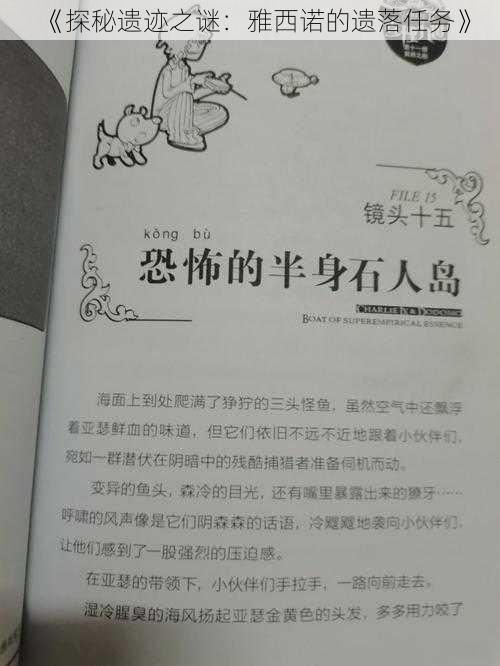 《探秘遗迹之谜：雅西诺的遗落任务》
FILE 15
镜头十五
kǒng bù
恐怖的半身石人岛
CHARLIE IX & DODOMO
BOAT OF SUPEREMPIRICAL ESSENCE
海面上到处爬满了狰狞的三头怪鱼，虽然空气中还飘浮
着亚瑟鲜血的味道，但它们依旧不远不近地跟着小伙伴们，
宛如一群潜伏在阴暗中的残酷捕猎者准备伺机而动。
变异的鱼头，森冷的目光，还有嘴里暴露出来的獠牙……
呼啸的风声像是它们阴森森的话语，冷飕飕地袭向小伙伴们，
让他们感到了一股强烈的压迫感。
在亚瑟的带领下，小伙伴们手拉手，一路向前走去。
湿冷腥臭的海风扬起亚瑟金黄色的头发，多多用力咬了